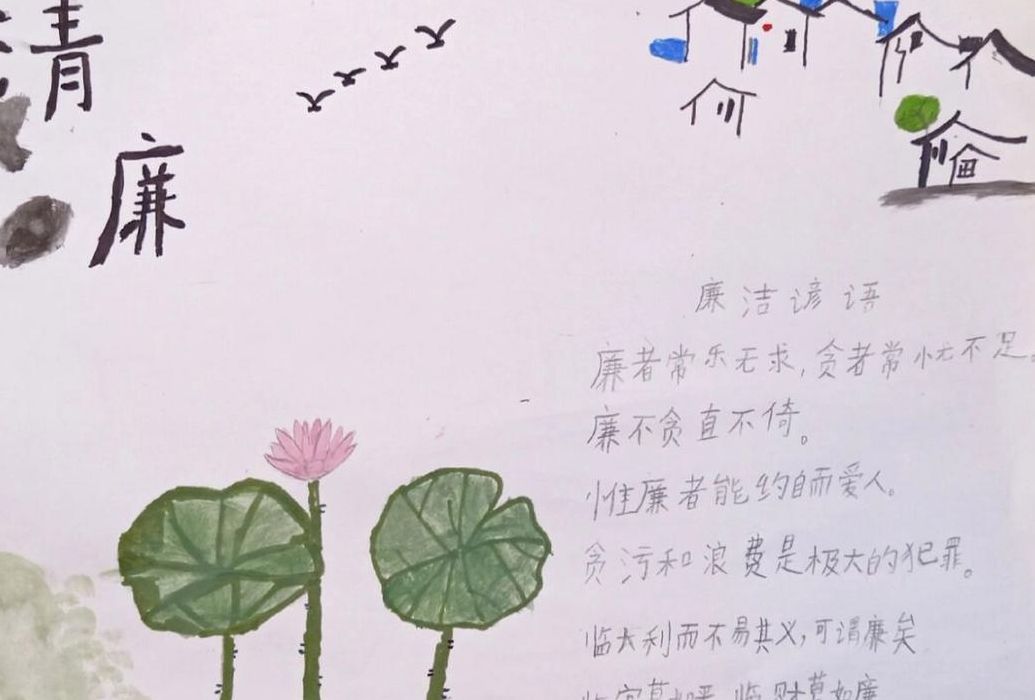 清
廉
廉洁谚语
廉者常乐无求,贪者常忧不足。
廉不贪直不倚。
惟廉者能约自而爱人。
贪污和浪费是极大的犯罪。
临大利而不易其义,可谓廉矣
临官莫如平,临财莫如廉